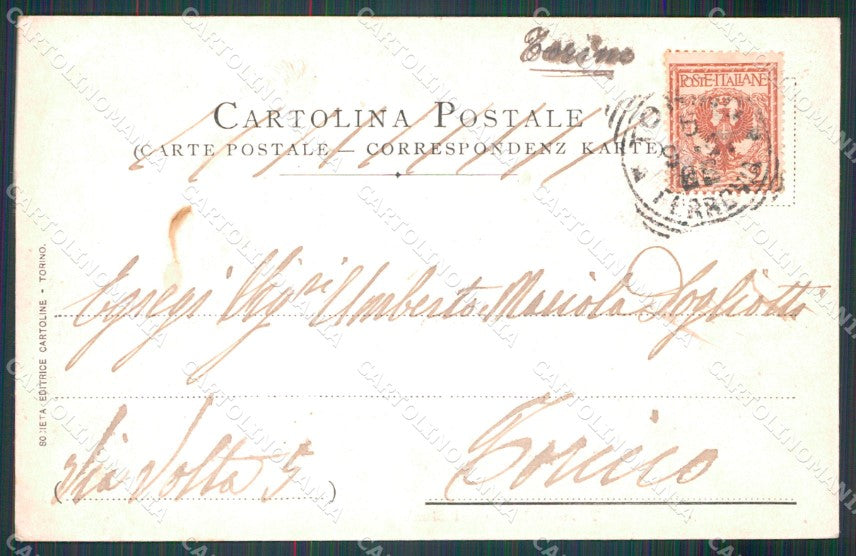 Torino
POSTE·ITALIANE
CARTOLINA POSTALE
(CARTE POSTALE — CORRESPONDENZ KARTE)
TO
FERROVIA
Egregi Sigri Umberto e Mariola Dogliotti
Via Volta 5
Torino
SOCIETA EDITRICE CARTOLINE - TORINO.
CARTOLINOMANIA